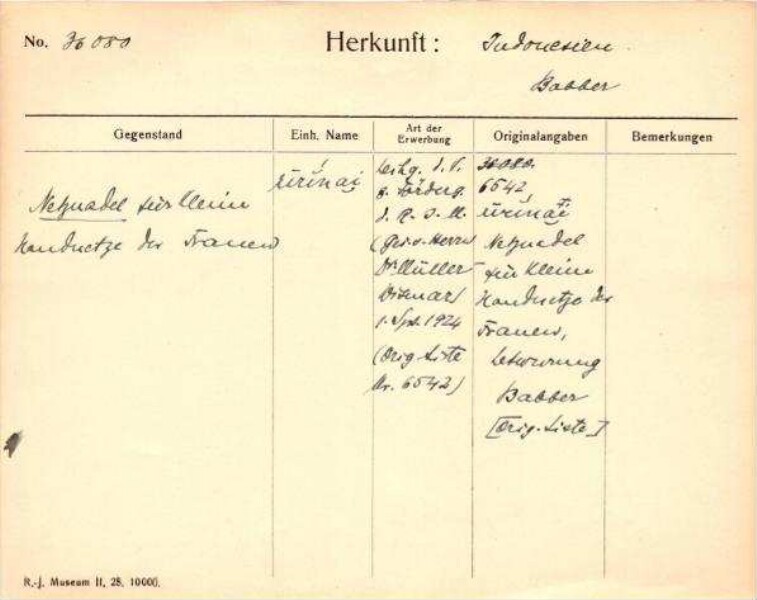 No. 36080 Herkunft: Indonesien
Babber
Gegenstand
Einh. Name
Art der
Erwerbung
Originalangaben
Bemerkungen
Netznadel für kleine
Handnetze der Frauen
Leihg. d. V.
z. Förderg.
d. R. J. M.
(Ges. v. Herrn
Dr. Müller
Wismar)
1. Spt. 1924
(Orig-Liste
Nr. 6542)
36080.
6542
Netznadel
für kleine
Handnetze der
Frauen,
Babber
[Orig.-Liste]
R.-J. Museum II, 28, 10000.